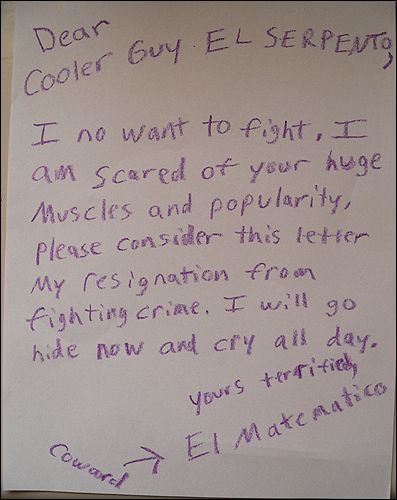 Dear
Cooler Guy EL SERPENTO,
I no want to fight, I
am scared of your huge
Muscles and popularity,
please consider this letter
My resignation from
fighting crime. I will go
hide now and cry all day.
yours terrified,
El Matematico
Coward →